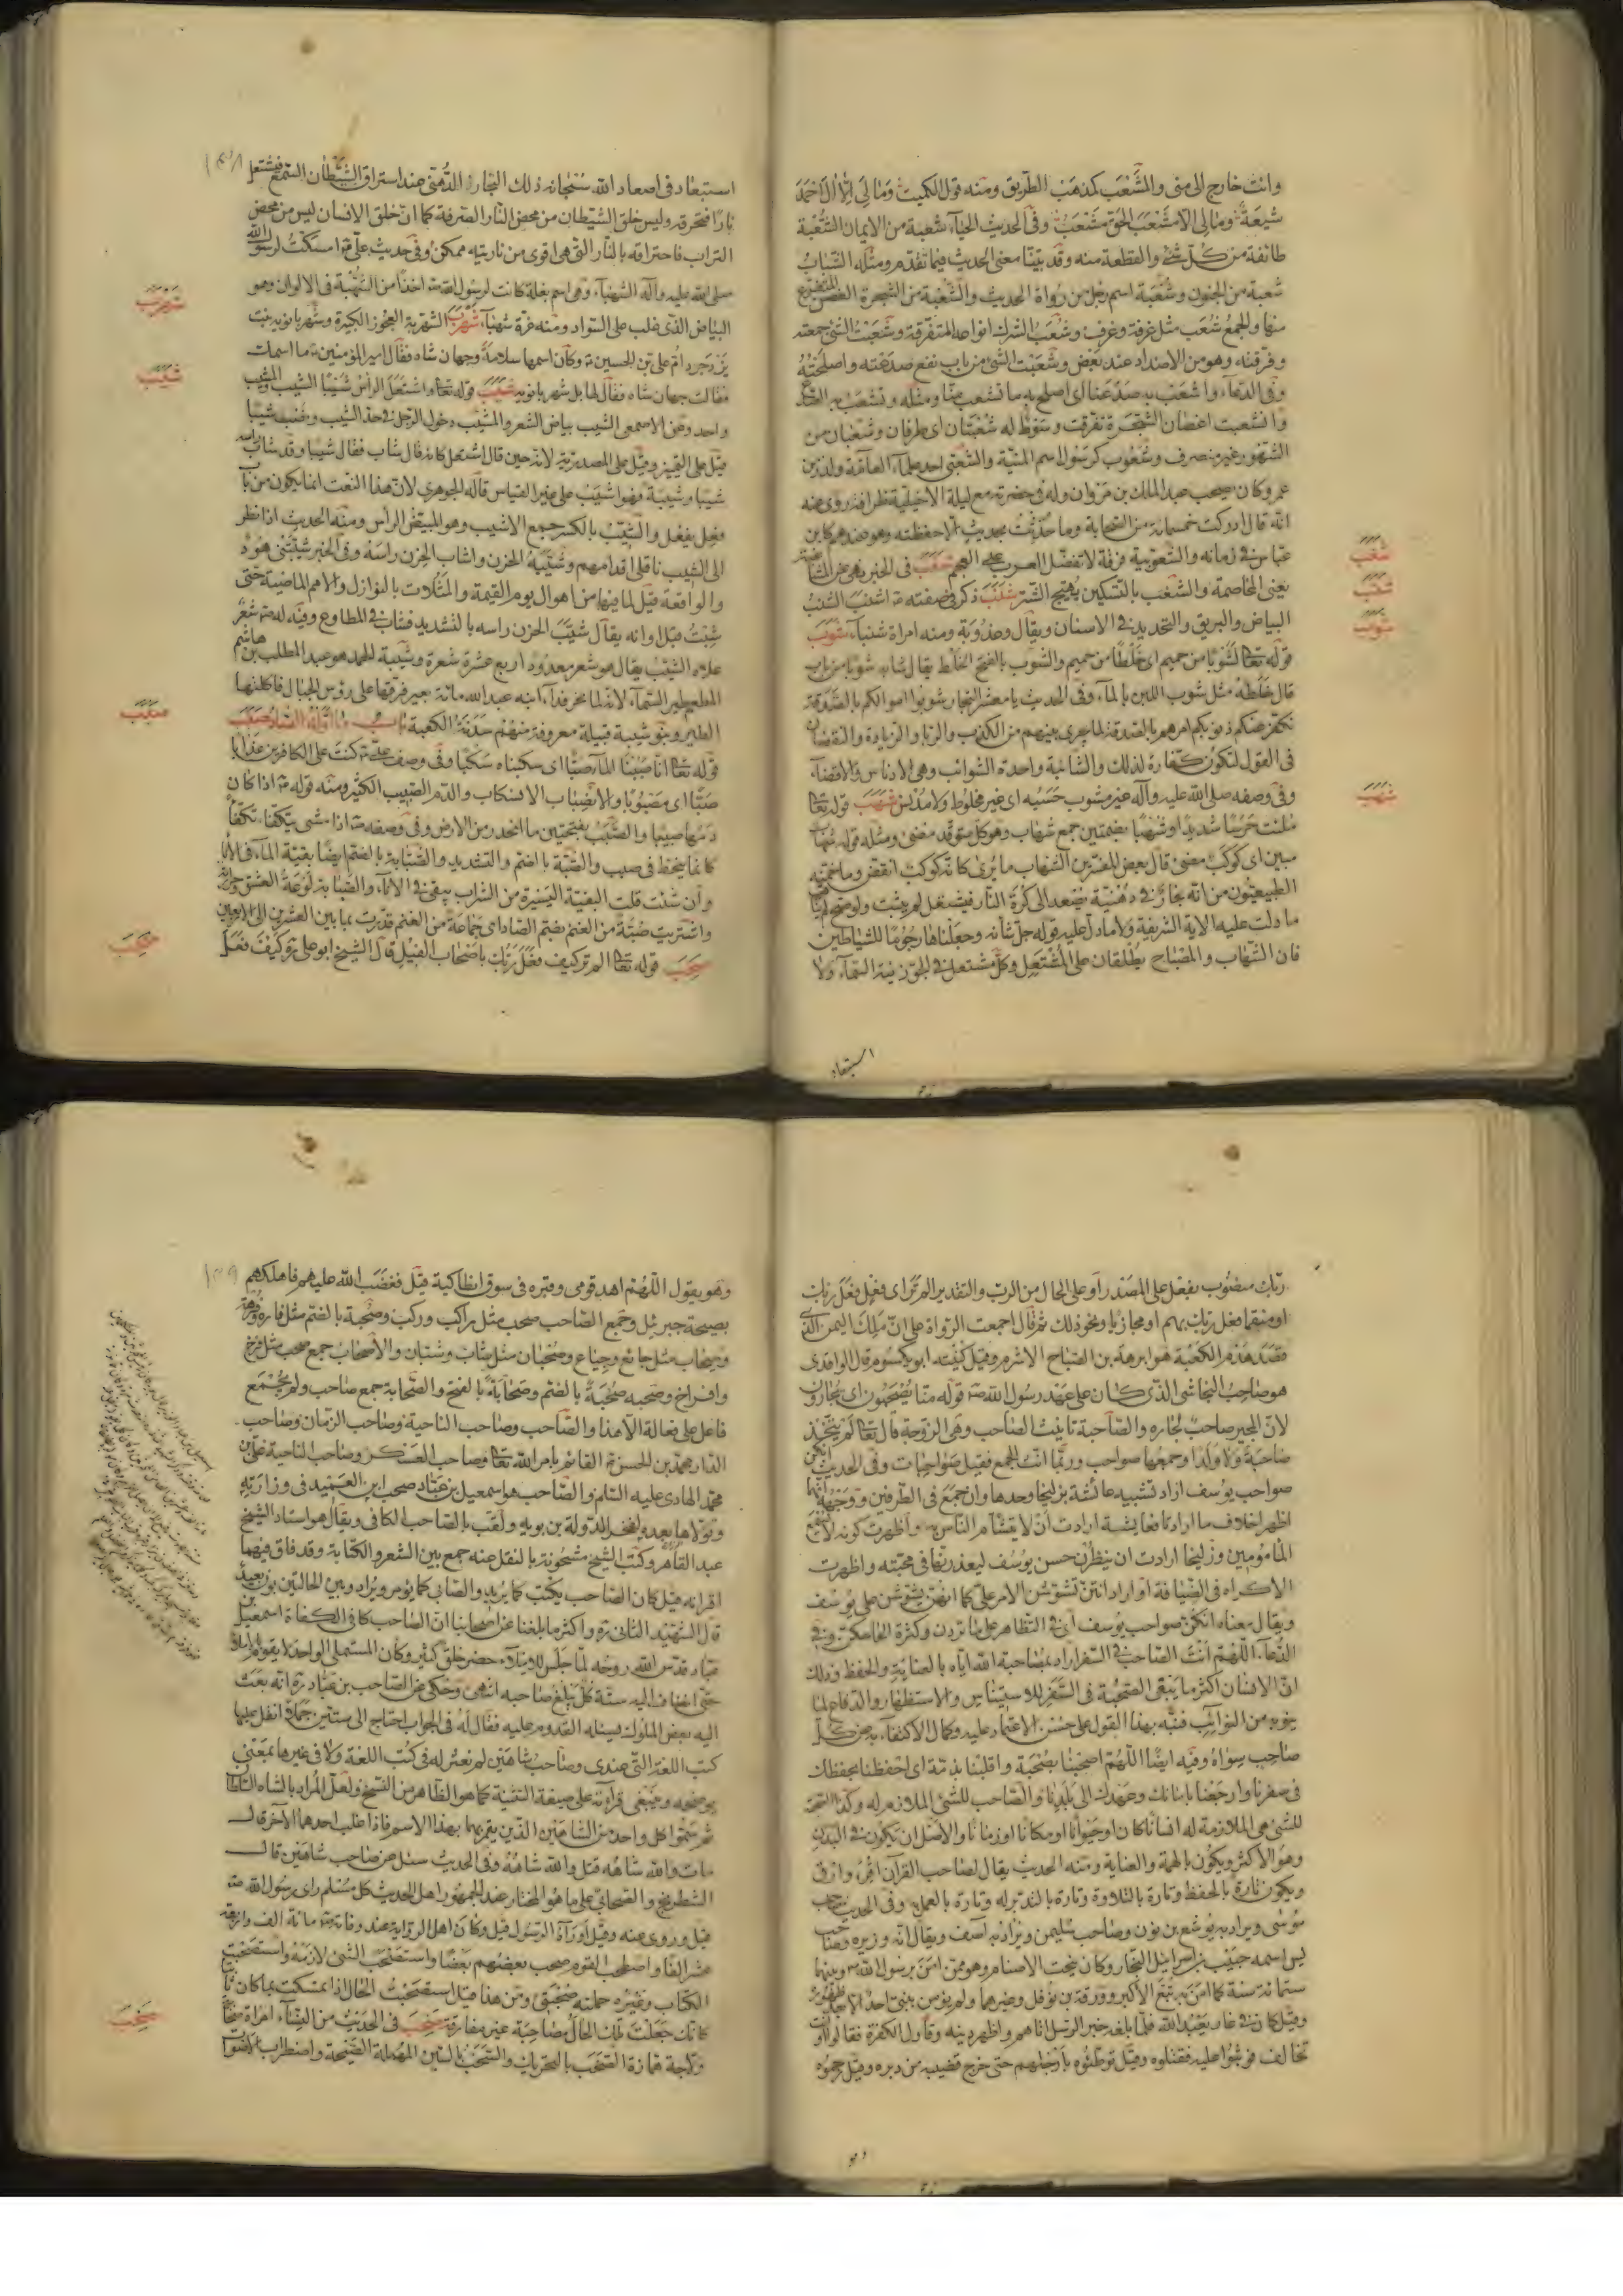 وانت خارج الى منى والمشعب كمذهب الطريق ومنه قول الكميت ومالي الا آل احمد
شيعة ومالي الا مشعب الحق مشعب وفي الحديث الحياء شعبة من الايمان الشعبة
طائفة من كل شئ والقطعة منه وقد بيّنا معنى الحديث فيما تقدم ومثله الشباب
شعبة من الجنون وشعبة اسم رجل من رواة الحديث والشعبة من الشجرة الغصن المتفرع
منها والجمع شعب مثل غرفة وغرف وشعب الشرك انواعه المتفرقة وشعبت الشئ جمعته
وفرقته وهو من الاضداد عند بعض وشعبت الشئ من باب نفع صدعته واصلحته
وفي الدعاء واشعب به صدعنا اى اصلح به ما تشعب منا ومثله وتشعب به الصدع
وانشعبت اغصان الشجرة تفرقت وسوط له شعبتان اى طرفان وشعبان من
الشهور غير منصرف وشعوب كرسول اسم المنية والشعبي احد علماء العامة ولد زمن
عمر وكان صحب عبد الملك بن مروان وله في حضرته مع ليلة الاخيلية ظرافة روى عنه
انه قال ادركت خمسمائة من الصحابة وما حدثت بحديث الا حفظته وهو عندهم كابن
عباس في زمانه والشعوبية فرقة لا تفضل العرب على العجم شغب في الخبر نهى عن المشاغبة
يعنى المخاصمة والشغب بالتسكين تهييج الشر شنب ذكر في صفته ص اشنب الشنب
البياض والبريق والتحديد في الاسنان ويقال وعذوبة ومنه امراة شنباء شوب
قوله تعالى لشوبا من حميم اى خلطا من حميم والشوب بالفتح الخلط يقال شابه شوبا من باب
قال خلطه مثل شوب اللبن بالماء وفي الحديث يا معشر التجار شوبوا اموالكم بالصدقة
تكفر عنكم ذنوبكم امرهم بالصدقة لما يجرى بينهم من الكذب والربا والزيادة والنقصان
في القول لتكون كفارة لذلك والشائبة واحدة الشوائب وهي الادناس والاقذاء
وفي وصفه صلى الله عليه وآله غير مشوب حسبه اى غير مخلوط ولا مدلس شهب قوله تعالى
ملئت حرسا شديدا وشهبا بضمتين جمع شهاب وهو كل متوقد مضئ ومثله قوله شهاب
مبين اى كوكب مضئ قال بعض المفسرين الشهاب ما يرى كانه كوكب انقض وما خمنه
الطبيعيون من انه بخار فيه دهنية يصعد الى كرة النار فيشتعل لم يثبت ولو صح لم يناف
ما دلت عليه الاية الشريفة ولا ما دل عليه قوله جل شأنه وجعلناها رجوما للشياطين
فان الشهاب والمصباح يطلقان على المشتعل وكل مشتعل في الجو زينة السماء ولا
استبعاد
شغب
شنب
شوب
شهب
استبعاد في اصعاد الله سبحانه ذلك البخار الدهني عند استراق الشيطان السمع فيشتعل
نارا فتحرقه وليس خلق الشيطان من محض النار الصرفة كما ان خلق الانسان ليس من محض
التراب فاحتراقه بالنار التي هي اقوى من ناريته ممكن وفي حديث على ع قوا مسكت لرسول الله
صلى الله عليه وآله الشهباء وهي اسم بغلة كانت لرسول الله ص اخذا من الشهبة في الالوان وهو
البياض الذى غلب على السواد ومنه غرة شهباء شهرب الشهربة العجوز الكبيرة وشهربانويه بنت
يزدجرد ام على بن الحسين ع وكان اسمها سلامة وجهان شاه فقال امير المؤمنين ع ما اسمك
فقالت جهان شاه فقال لها بل شهربانويه شيب قوله تعالى واشتعل الرأس شيبا الشيب والمشيب
واحد وعن الاصمعى الشيب بياض الشعر والمشيب دخول الرجل في حد الشيب ونصب شيبا
قيل على التمييز وقيل على المصدرية لانه حين قال اشتعل كانه قال شاب فقال شيبا وقد شاب راسه
شيبا وشيبة فهو اشيب على غير القياس قاله الجوهرى لان هذا النعت انما يكون من باب
فعل يفعل والشيب بالكسر جمع الاشيب وهو المبيض الرأس ومنه الحديث اذا نظر
الى الشيب ناقلى اقدامهم وشيبه الحزن واشاب الحزن راسه وفي الخبر شيبتنى هود
والواقعة قيل لما فيها من اهوال يوم القيمة والمثلات بالنوازل والامم الماضية حتى
شبت قبل اوانه يقال شيب الحزن راسه بالتشديد فشاب في المطاوع وفيه له ص شعر
علاه الشيب يقال هو شعر معدود اربع عشرة شعرة وشيبة الحمد هو عبد المطلب بن هاشم
المطعم طير السماء لانه لما نحر فداء ابنه عبد الله مائة بعير فرقها على رؤس الجبال فاكلتها
الطير وبنو شيبة قبيلة معروفة منهم سدنة الكعبة باب ما اوله الصاد صبب
قوله تعالى انا صببنا الماء صبا اى سكبناه سكبا وفي وصف على ع كنت على الكافرين عذابا
صبا اى مصبوبا والانصباب الانسكاب والدم الصبيب الكثير ومنه قوله ص اذا كان
دمها صبيبا والصبب بفتحتين ما انحدر من الارض وفي وصفه ص اذا مشى يتكفا تكفأ
كانما ينحط في صبب والصبة بالضم والتشديد والصبابة بالضم ايضا بقية الماء في الاناء
وان شئت قلت البقية اليسيرة من الشراب يبقى في الاناء والصبابة لوعة العشق وحرارته
واشتريت صبة من الغنم بضم الصاد اى جماعة من الغنم قدرت بما بين العشرين الى الاربعين
صحب قوله تعالى الم تر كيف فعل ربك باصحاب الفيل قال الشيخ ابو على ره كيف فعل
شهرب
شيب
صبب
صحب
ربك منصوب بفعل على المصدر او على الحال من الرب والتقدير الم تر اى فعل فعل ربك
او منتقما فعل ربك بهم او مجازيا ونحو ذلك ثم قال اجمعت الرواة على ان ملك اليمن الذى
قصد هدم الكعبة هو ابرهة بن الصباح الاشرم وقيل كنيته ابو يكسوم قال الواقدى
هو صاحب النجاشى الذى كان على عهد رسول الله ص قوله منا يصحبون اى يجارون
لان المجير صاحب لجاره والصاحبة تانيث الصاحب وهي الزوجة قال تعالى لم يتخذ
صاحبة ولا ولدا وجمعها صواحب وربما انث الجمع فقيل صواحبات وفي الحديث انتن
صواحب يوسف اراد تشبيه عائشة بزليخا وحدها وان جمع في الطرفين ووجهه انهما
اظهرا خلاف ما ارادتا فعايشة ارادت ان لا يتشأم الناس به واظهرت كونه لا يسمع
المامومين وزليخا ارادت ان ينظرن حسن يوسف ليعذرنها في محبته واظهرت
الاكراه في الضيافة او اراد انتن تشوشن الامر على كما انهن يشوشن على يوسف
ويقال معناه انكن صواحب يوسف اى في التظاهر على ما تردن وكثرة الحاحكن وفي
الدعاء اللهم انت الصاحب في السفر اراد بمصاحبة الله اياه بالعناية والحفظ وذلك
ان الانسان اكثر ما يبقى الصحبة في السفر للاستيناس والاستظهار والدفاع لما
ينوبه من النوائب فنبه بهذا القول على حسن الاعتماد عليه وكمال الاكتفاء به عن كل
صاحب سواه وفيه ايضا اللهم اصحبنا بصحبة واقلبنا بذمة اى احفظنا بحفظك
في سفرنا وارجعنا بامانك وعهدك الى بلدنا والصاحب للشئ الملازم له وكذا الصحبة
للشئ هي الملازمة له انسانا كان او حيوانا او مكانا او زمانا والاصل ان يكون في البدن
وهو الاكثر ويكون بالهمة والعناية ومنه الحديث يقال لصاحب القرآن اقرء وارق
ويكون تارة بالحفظ وتارة بالتلاوة وتارة بالتدبر له وتارة بالعمل به وفي الحديث صاحب
موسى ويراد به يوشع بن نون وصاحب سليمن ويراد به آصف ويقال انه وزيره وصاحب
يس اسمه حبيب بن اسرائيل النجار وكان ينحت الاصنام وهو ممن امن برسول الله ص وبينهما
ستمائة سنة كما امن به تبع الاكبر وورقة بن نوفل وغيرهما ولم يؤمن بنبى احد الا بعد ظهوره
وقيل كان في غار يعبد الله فلما بلغه خبر الرسل اتاهم واظهر دينه وقاول الكفرة فقالوا او انت
تخالف فوثبوا عليه فقتلوه وقيل توطئوه بارجلهم حتى خرج قضيبه من دبره وقيل رجموه
وهو
وهو يقول اللهم اهد قومى وقبره في سوق انطاكية قيل فغضب الله عليهم فاهلكهم
بصيحة جبرئيل وجمع الصاحب صحب مثل راكب وركب وصحبة بالضم مثل فاره وفرهة
وصحاب مثل جائع وجياع وصحبان مثل شاب وشبان والاصحاب جمع صحب مثل فرخ
وافراخ وصحبه صحبة بالضم وصحابة بالفتح والصحابة جمع صاحب ولم يجمع
فاعل على فعالة الا هذا والصاحب وصاحب الناحية وصاحب الزمان وصاحب
الدار محمد بن الحسن ع القائم بامر الله تعالى وصاحب العسكر وصاحب الناحية على بن
محمد الهادى عليه السلام والصاحب هو اسمعيل بن عباد صحب ابن العميد في وزارته
وتولاها بعده لفخر الدولة بن بويه ولقب بالصاحب الكافى ويقال هو استاد الشيخ
عبد القاهر وكتب الشيخ مشحونة بالنقل عنه جمع بين الشعر والكتابة وقد فاق فيهما
اقرانه قيل كان الصاحب يكتب كما يريد والصابى كما يؤمر ويراد وبين الحالتين بون بعيد
قال الشهيد الثانى ره واكثر ما بلغنا عن اصحابنا ان الصاحب كافى الكفاة اسمعيل بن
عباد قدس الله روحه لما جلس للاملاء حضر خلق كثير وكان المستملى الواحد لا يقوم بالاملاء
حتى انضاف اليه ستة كل يبلغ صاحبه انتهى وحكى عن الصاحب بن عباد ره انه بعث
اليه بعض الملوك يسئله القدوم عليه فقال له في الجواب احتاج الى ستين جملا انقل عليها
كتب اللغة التى عندى وصاحب شاهين لم نعثر له في كتب اللغة ولا في غيرها بمعنى
يوضحه وينبغى قرائته على صيغة التثنية كما هو الظاهر من النسخ ولعل المراد بالشاه السلطان
ثم سموا كل واحد من الشاهين الذين يقمر بهما بهذا الاسم فاذا غلب احدهما الآخر قال
مات والله شاهه قتل والله شاهه وفي الحديث سئل عن صاحب شاهين قال
الشطرنج والصحابى على ما هو المختار عند الجمهور اهل الحديث كل مسلم راى رسول الله ص
قيل وروى عنه وقيل او رآه الرسول قيل وكان اهل الرواية عند وفاته ص مائة الف واربعة
عشر الفا واصطحب القوم صحب بعضهم بعضا واستصحب الشئ لازمه واستصحبت
الكتاب وغيره حملته صحبتى ومن هنا قيل استصحبت الحال اذا تمسكت بما كان ثابتا
كانك جعلت تلك الحال مصاحبة غير مفارقة صخب في الحديث من النساء امراة صخابة
ولاجة همازة الصخب بالتحريك والسخب بالسين المهملة الصيحة واضطراب الاصوات
صخب